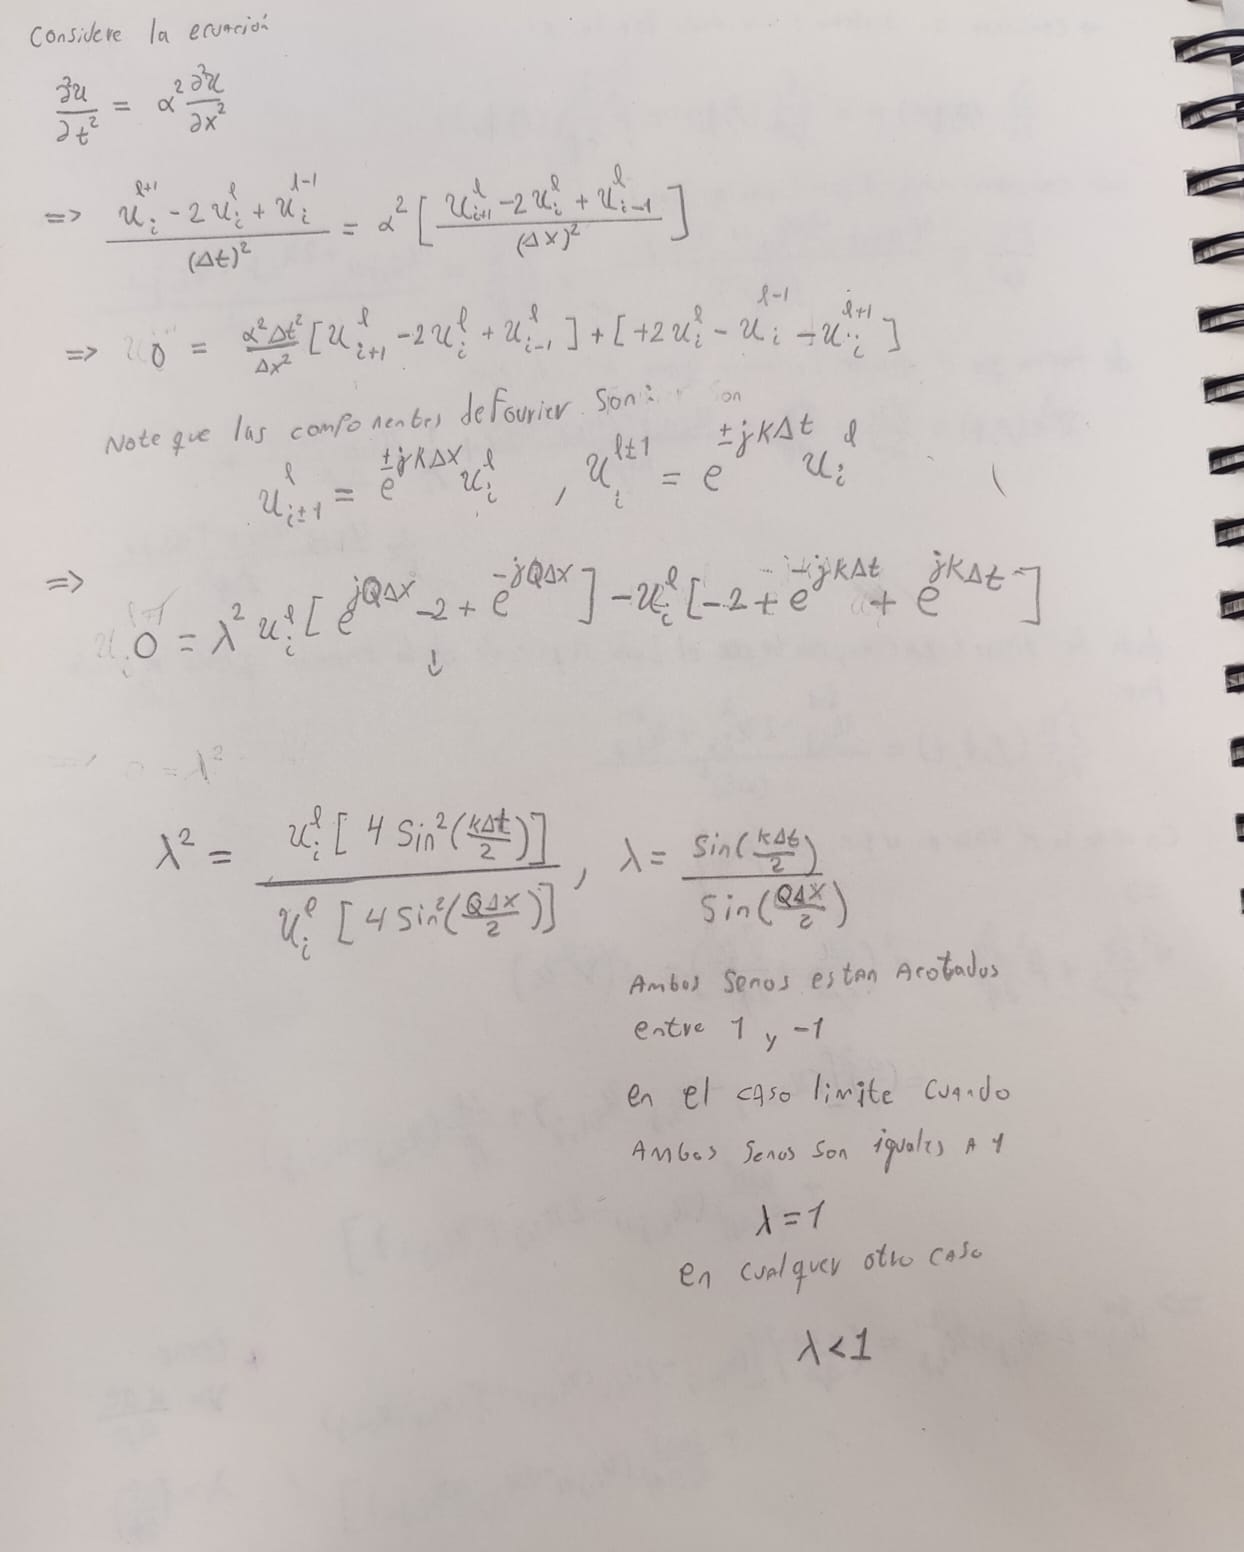 Considere la ecuación
∂²u/∂t² = α² ∂²u/∂x²
=> (u_i^{l+1} - 2u_i^l + u_i^{l-1})/(Δt)² = α² [ (u_{i+1}^l - 2u_i^l + u_{i-1}^l)/(Δx)² ]
=> 0 = α²Δt²/Δx² [u_{i+1}^l - 2u_i^l + u_{i-1}^l] + [+2u_i^l - u_i^{l-1} - u_i^{l+1}]
Note que las componentes de Fourier son:
u_{i±1}^l = e^{±jkΔx} u_i^l , u_i^{l±1} = e^{±jkΔt} u_i^l
=>
0 = λ² u_i^l [e^{jQΔx} - 2 + e^{-jQΔx}] - u_i^l [-2 + e^{-jkΔt} + e^{jkΔt}]
↓
λ² = u_i^l [4 Sin²(kΔt/2)] / u_i^l [4 Sin²(QΔx/2)] , λ = Sin(kΔt/2) / Sin(QΔx/2)
Ambos senos estan Acotados
entre 1 y -1
en el caso limite cuando
Ambos senos son iguales A 1
λ = 1
en cualquer otro caso
λ < 1